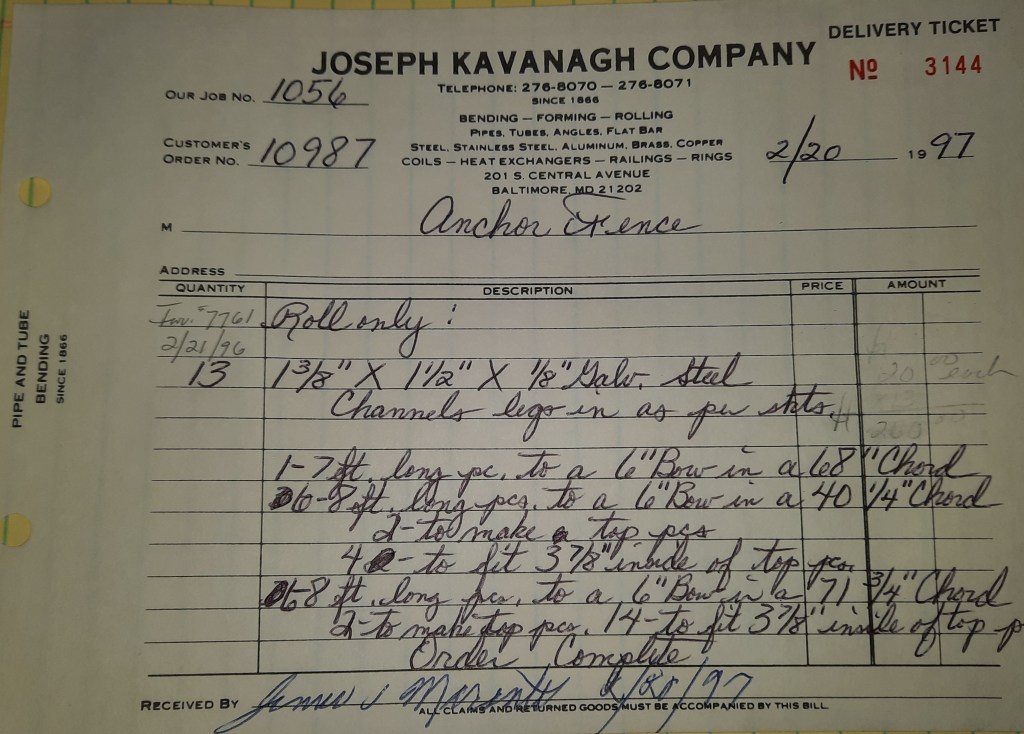 DELIVERY TICKET
JOSEPH KAVANAGH COMPANY
Nº 3144
TELEPHONE: 276-8070 — 276-8071
SINCE 1866
OUR JOB NO. 1056
BENDING — FORMING — ROLLING
PIPES, TUBES, ANGLES, FLAT BAR
STEEL, STAINLESS STEEL, ALUMINUM, BRASS, COPPER
COILS — HEAT EXCHANGERS — RAILINGS — RINGS
CUSTOMER'S
ORDER NO. 10987
2/20 1997
201 S. CENTRAL AVENUE
BALTIMORE, MD 21202
M Anchor Fence
ADDRESS
QUANTITY DESCRIPTION PRICE AMOUNT
Inv. #7761 Roll only:
2/21/96
13 1 3/8" X 1 1/2" X 1/8" Galv. Steel 20 00 each
Channels legs in as per skts. 260 00
1-7 ft. long pc. to a 6" Bow in a 68" Chord
6-8 ft. long pcs. to a 6" Bow in a 40 1/4" Chord
2-to make top pcs
4-to fit 3 7/8" inside of top pcs.
6-8 ft. long pcs. to a 6" Bow in a 71 3/4" Chord
2-to make top pcs. 14-to fit 3 7/8" inside of top p
Order Complete
RECEIVED BY James J /97
ALL CLAIMS AND RETURNED GOODS MUST BE ACCOMPANIED BY THIS BILL
PIPE AND TUBE
BENDING
SINCE 1866